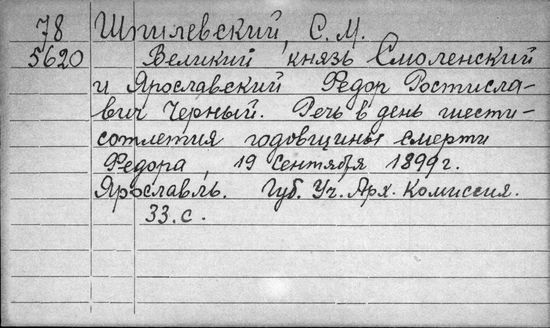 78 Шпилевский, С. М.
5620 Великий князь Смоленский
и Ярославский Федор Ростисла-
вич Черный. Речь в день шести-
сотлетия годовщины смерти
Федора, 19 Сентября 1899 г.
Ярославль. Губ. Уч. Арх. Комиссия.
33. с.